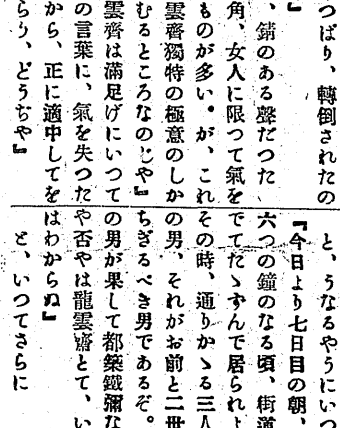 つぱり、轉倒されたの
』
、錆のある聲だつた
角、女人に限つて氣を
ものが多い。が、これ
雲齊獨特の極意のしか
むるところなのじや』
雲齊は滿足げにいつて
の言葉に、氣を失つた
から、正に適中してを
らう、どうぢや』
と、うなるやうにいつ
『今日より七日目の朝、
六つの鐘のなる頃、街道
でてたゝずんで居られよ
その時、通りかゝる三人
の男、それがお前と二世
ちぎるべき男であるぞ。
の男が果して都築鐵彌な
や否やは龍雲齋とて、い
はわからぬ』
と、いつてさらに